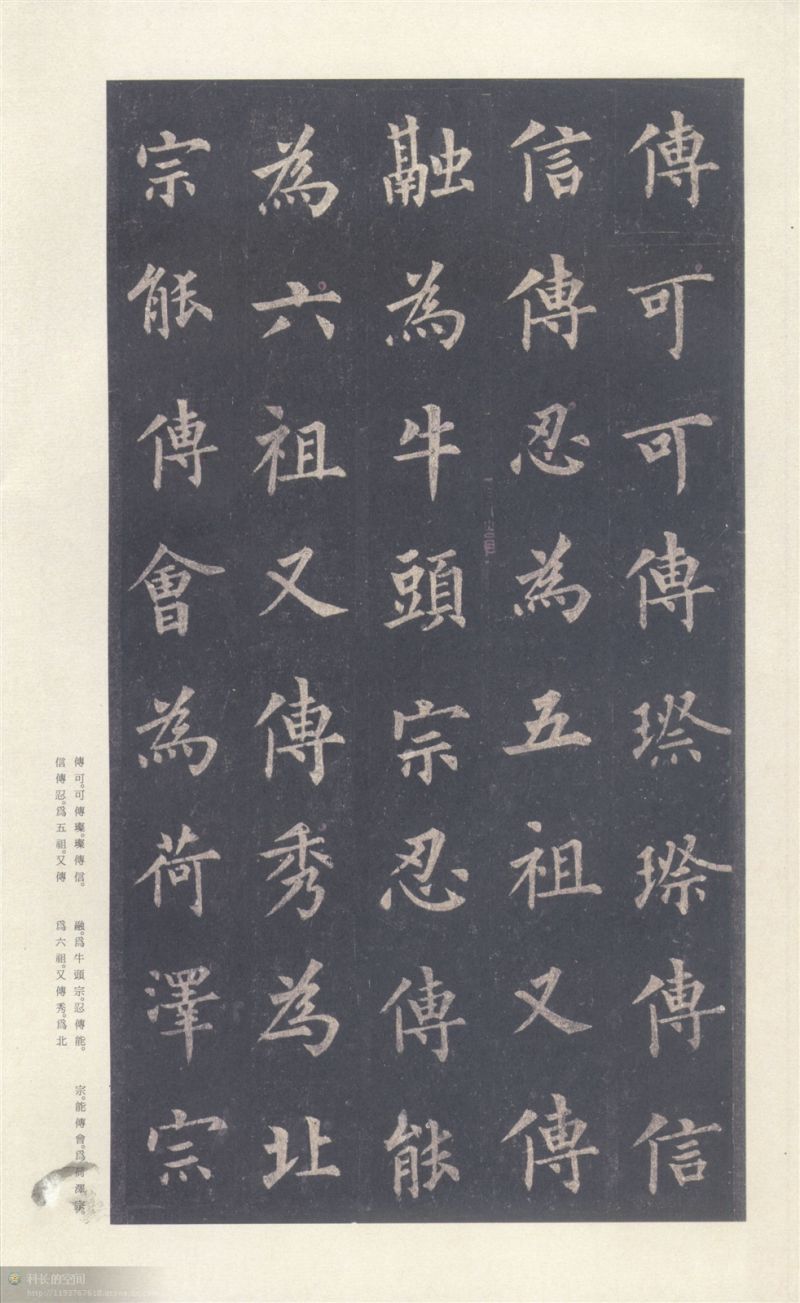 傳可可傳璨璨傳信
信傳忍為五祖又傳
融為牛頭宗忍傳能
為六祖又傳秀為北
宗能傳會為荷澤宗
傳可。可傳璨。璨傳信。
信傳忍。爲五祖。又傳
融。爲牛頭宗。忍傳能。
爲六祖。又傳秀。爲北
宗。能傳會。爲荷澤宗。
科长的空间